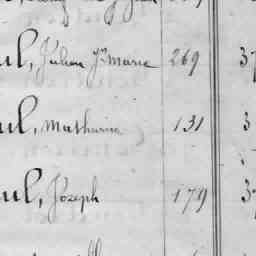 ul, Julien Jn Marie 269 37
ul, Mathurin 131 3
ul, Joseph 179 37